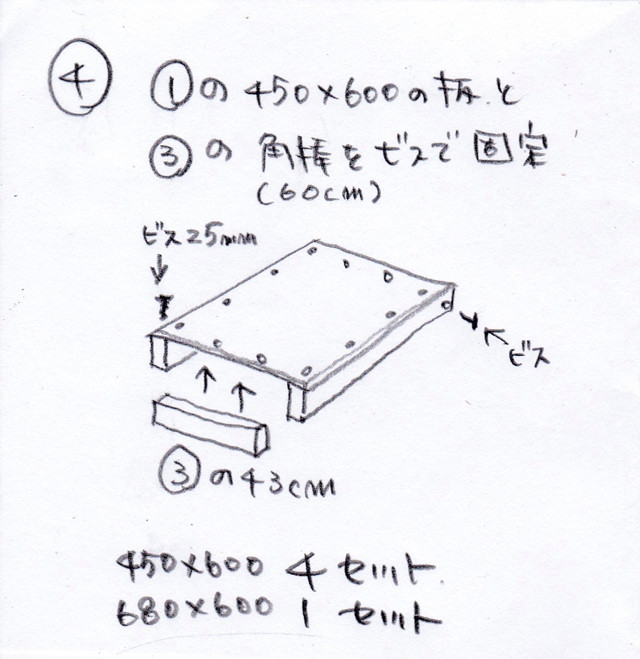 ④ ①の450×600の板と
③の角棒をビスで固定
(60cm)
ビス25mm
ビス
③の43cm
450×600 4セット
680×600 1セット